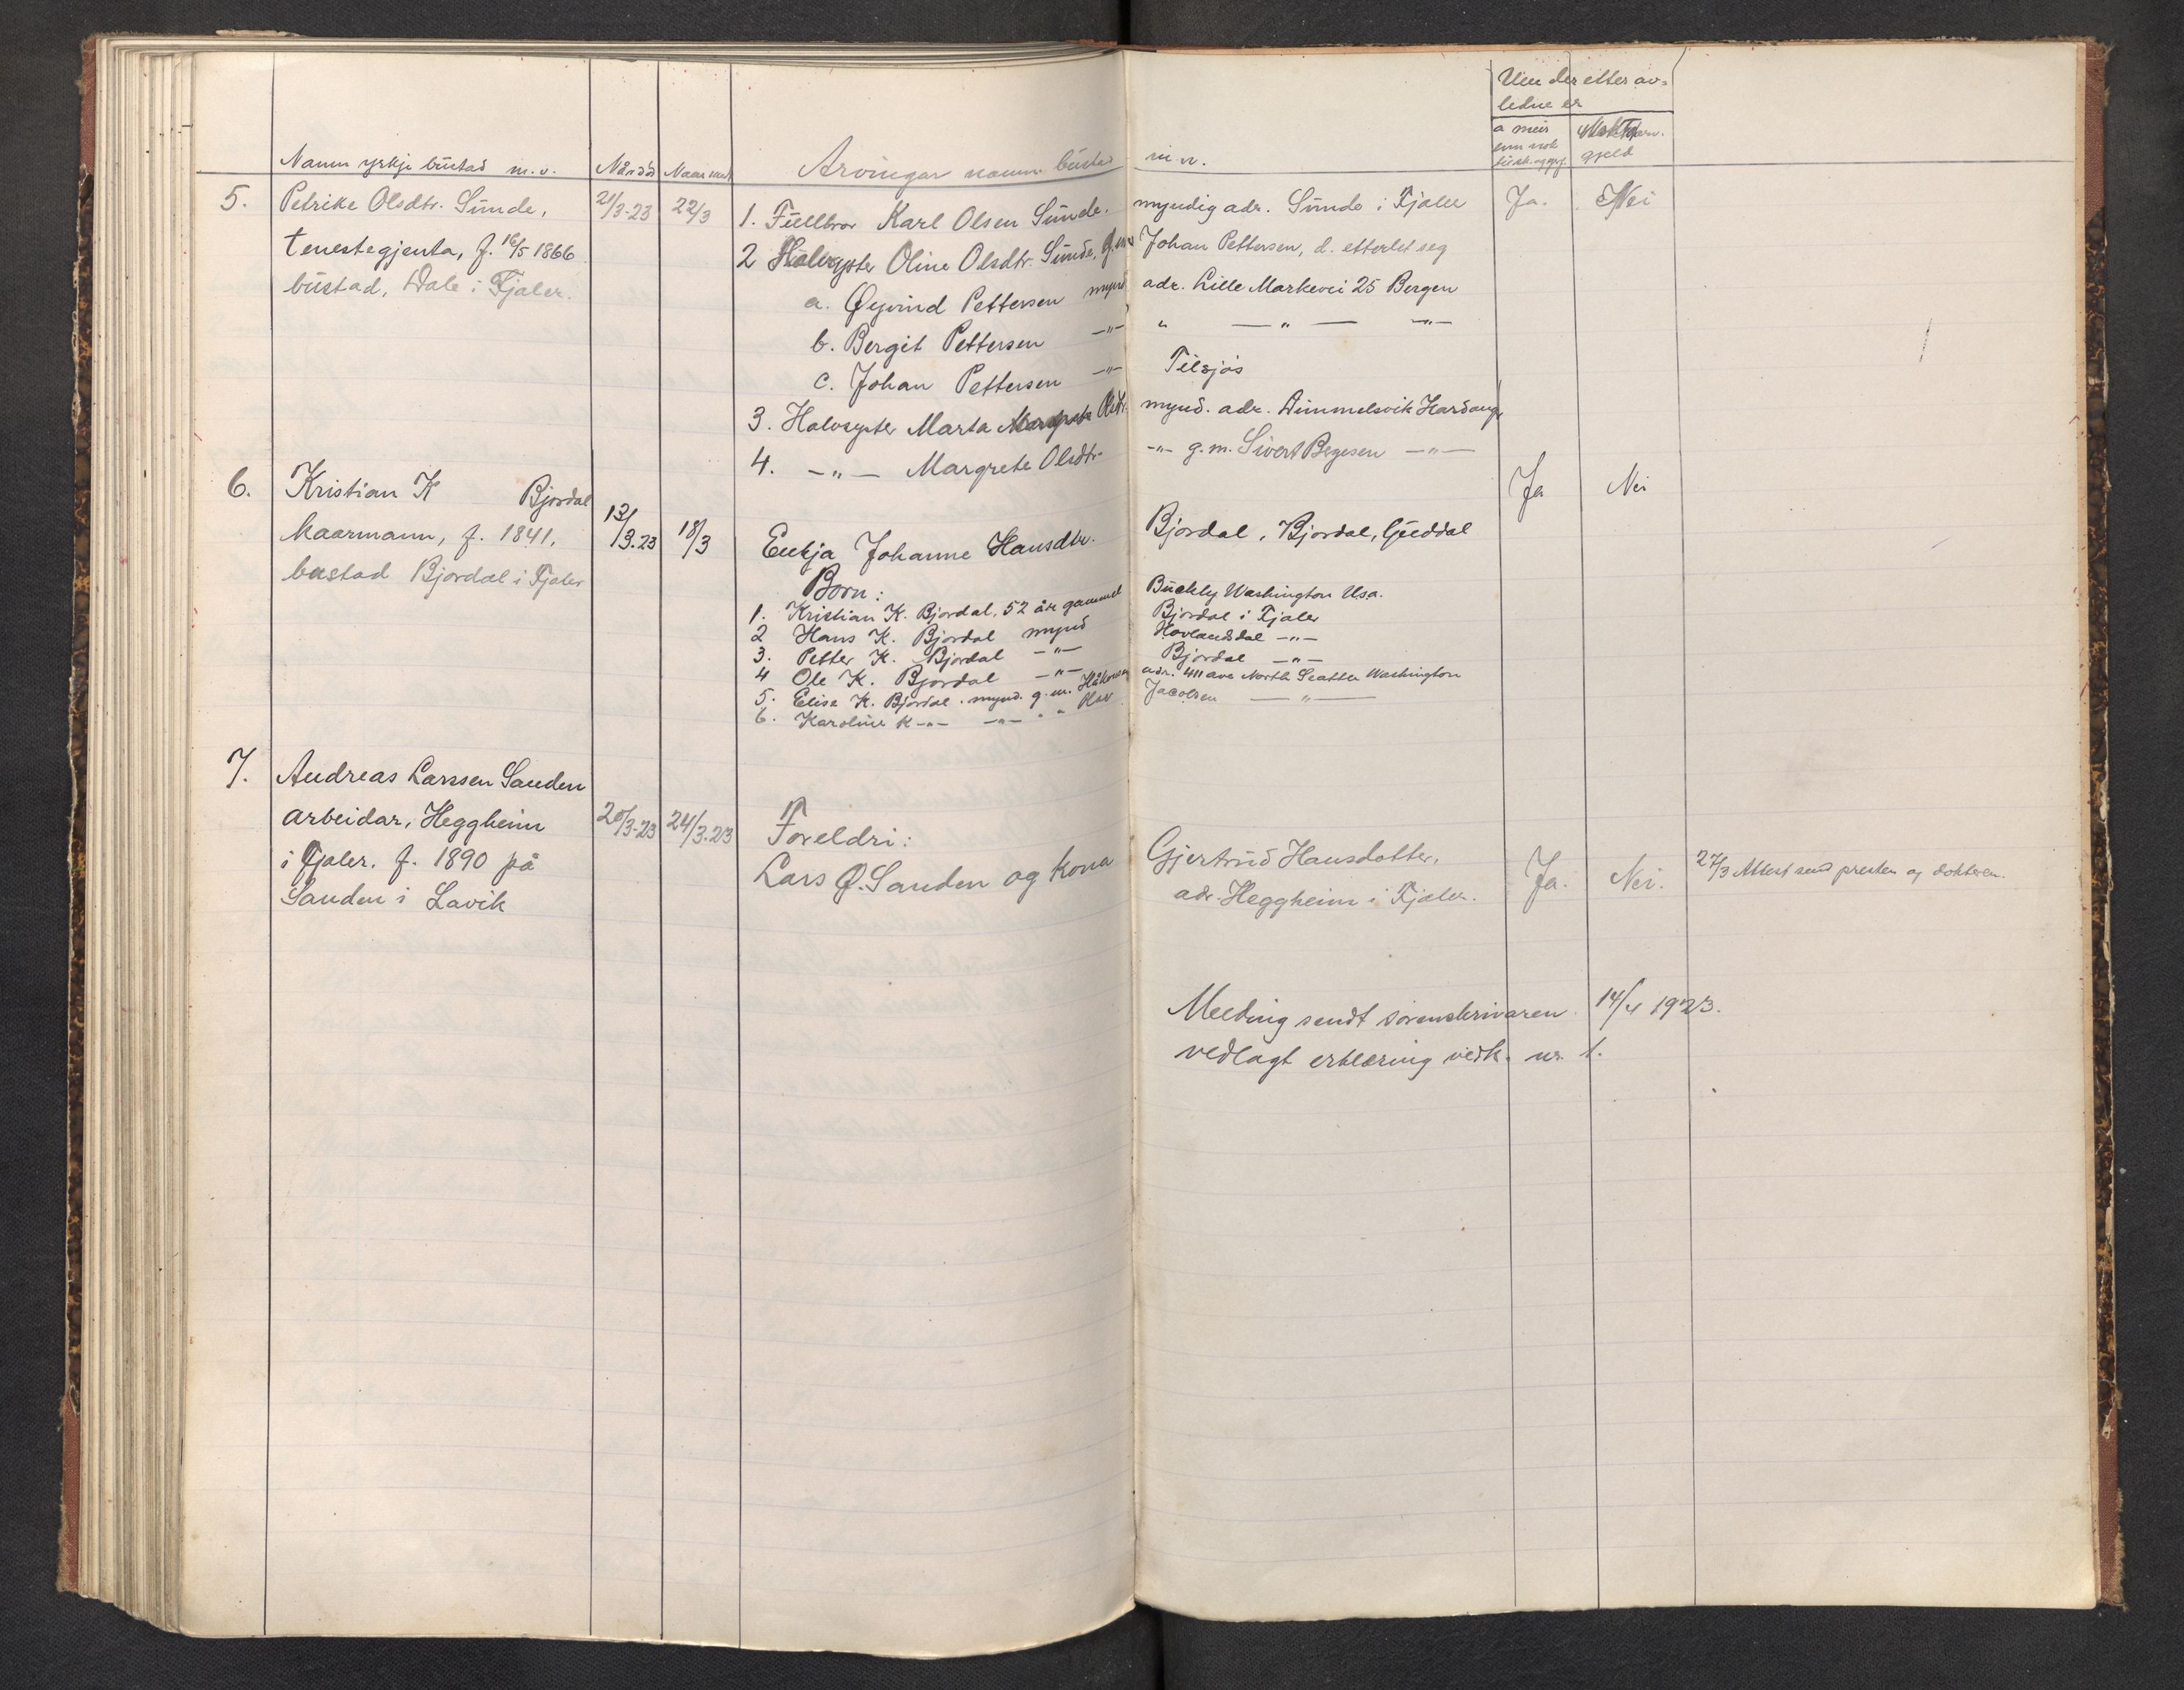 Um der etter av=
ledne er
a meir enn nok til sk. og grf.
gjeld
Namn yrkje bustad m.v.
Når død
Naar meld
Arvingar namn bustad m.v.
5. Petrike Olsdtr. Sunde, 21/3-23 22/3 1. Fullbror Karl Olsen Sunde, myndig adr. Sunde i Fjaler Ja. Nei
tenestegjenta, f. 16/5 1866 2 Halvsyster Oline Olsdtr. Sunde, g.m. Johan Pettersen, d. etterlet seg
bustad, Dale i Fjaler. a. Øyvind Pettersen mynd. adr. Lille Markevei 25 Bergen
b. Bergit Pettersen -"- " -"- -"-
c. Johan Pettersen -"- Tilsjøs
3. Halvsyster Marta Olsdtr. mynd. adr. Dimmelsvik Hardanger
4. -"- Margrete Olsdtr. -"- g.m. Sivert Bergesen -"-
6. Kristian K Bjordal Ja Nei
kaarmann, f. 1841, 13/3.23 18/3 Enkja Johanne Hansdtr. Bjordal, Bjordal, Guddal
bustad Bjordal i Fjaler
Born:
1. Kristian K. Bjordal, 52 år gammel Buckly Washington Usa.
2 Hans K. Bjordal mynd Bjordal i Fjaler
3. Petter K. Bjordal -"- Hovlandsdal -"-
4 Ole K. Bjordal -"- Bjordal -"-
5. Elise K. Bjordal. mynd. g.m. Håkon adr. 411 ave North Seattle Washington
6. Karoline K -"- -"- " " Jacobsen -"-
7. Andreas Larssen Sanden
arbeidar, Heggheim 20/3-23 24/3.23 Foreldri:
i Fjaler. f. 1890 på Lars Ø. Sanden og kona Gjertrud Hansdotter, Ja. Nei. 27/3 Attest send presten og dokteren.
Sanden i Lavik adr. Heggheim i Fjaler.
Melding sendt sorenskrivaren 14/4 1923.
vedlagt erklæring vedk. nr. 1.